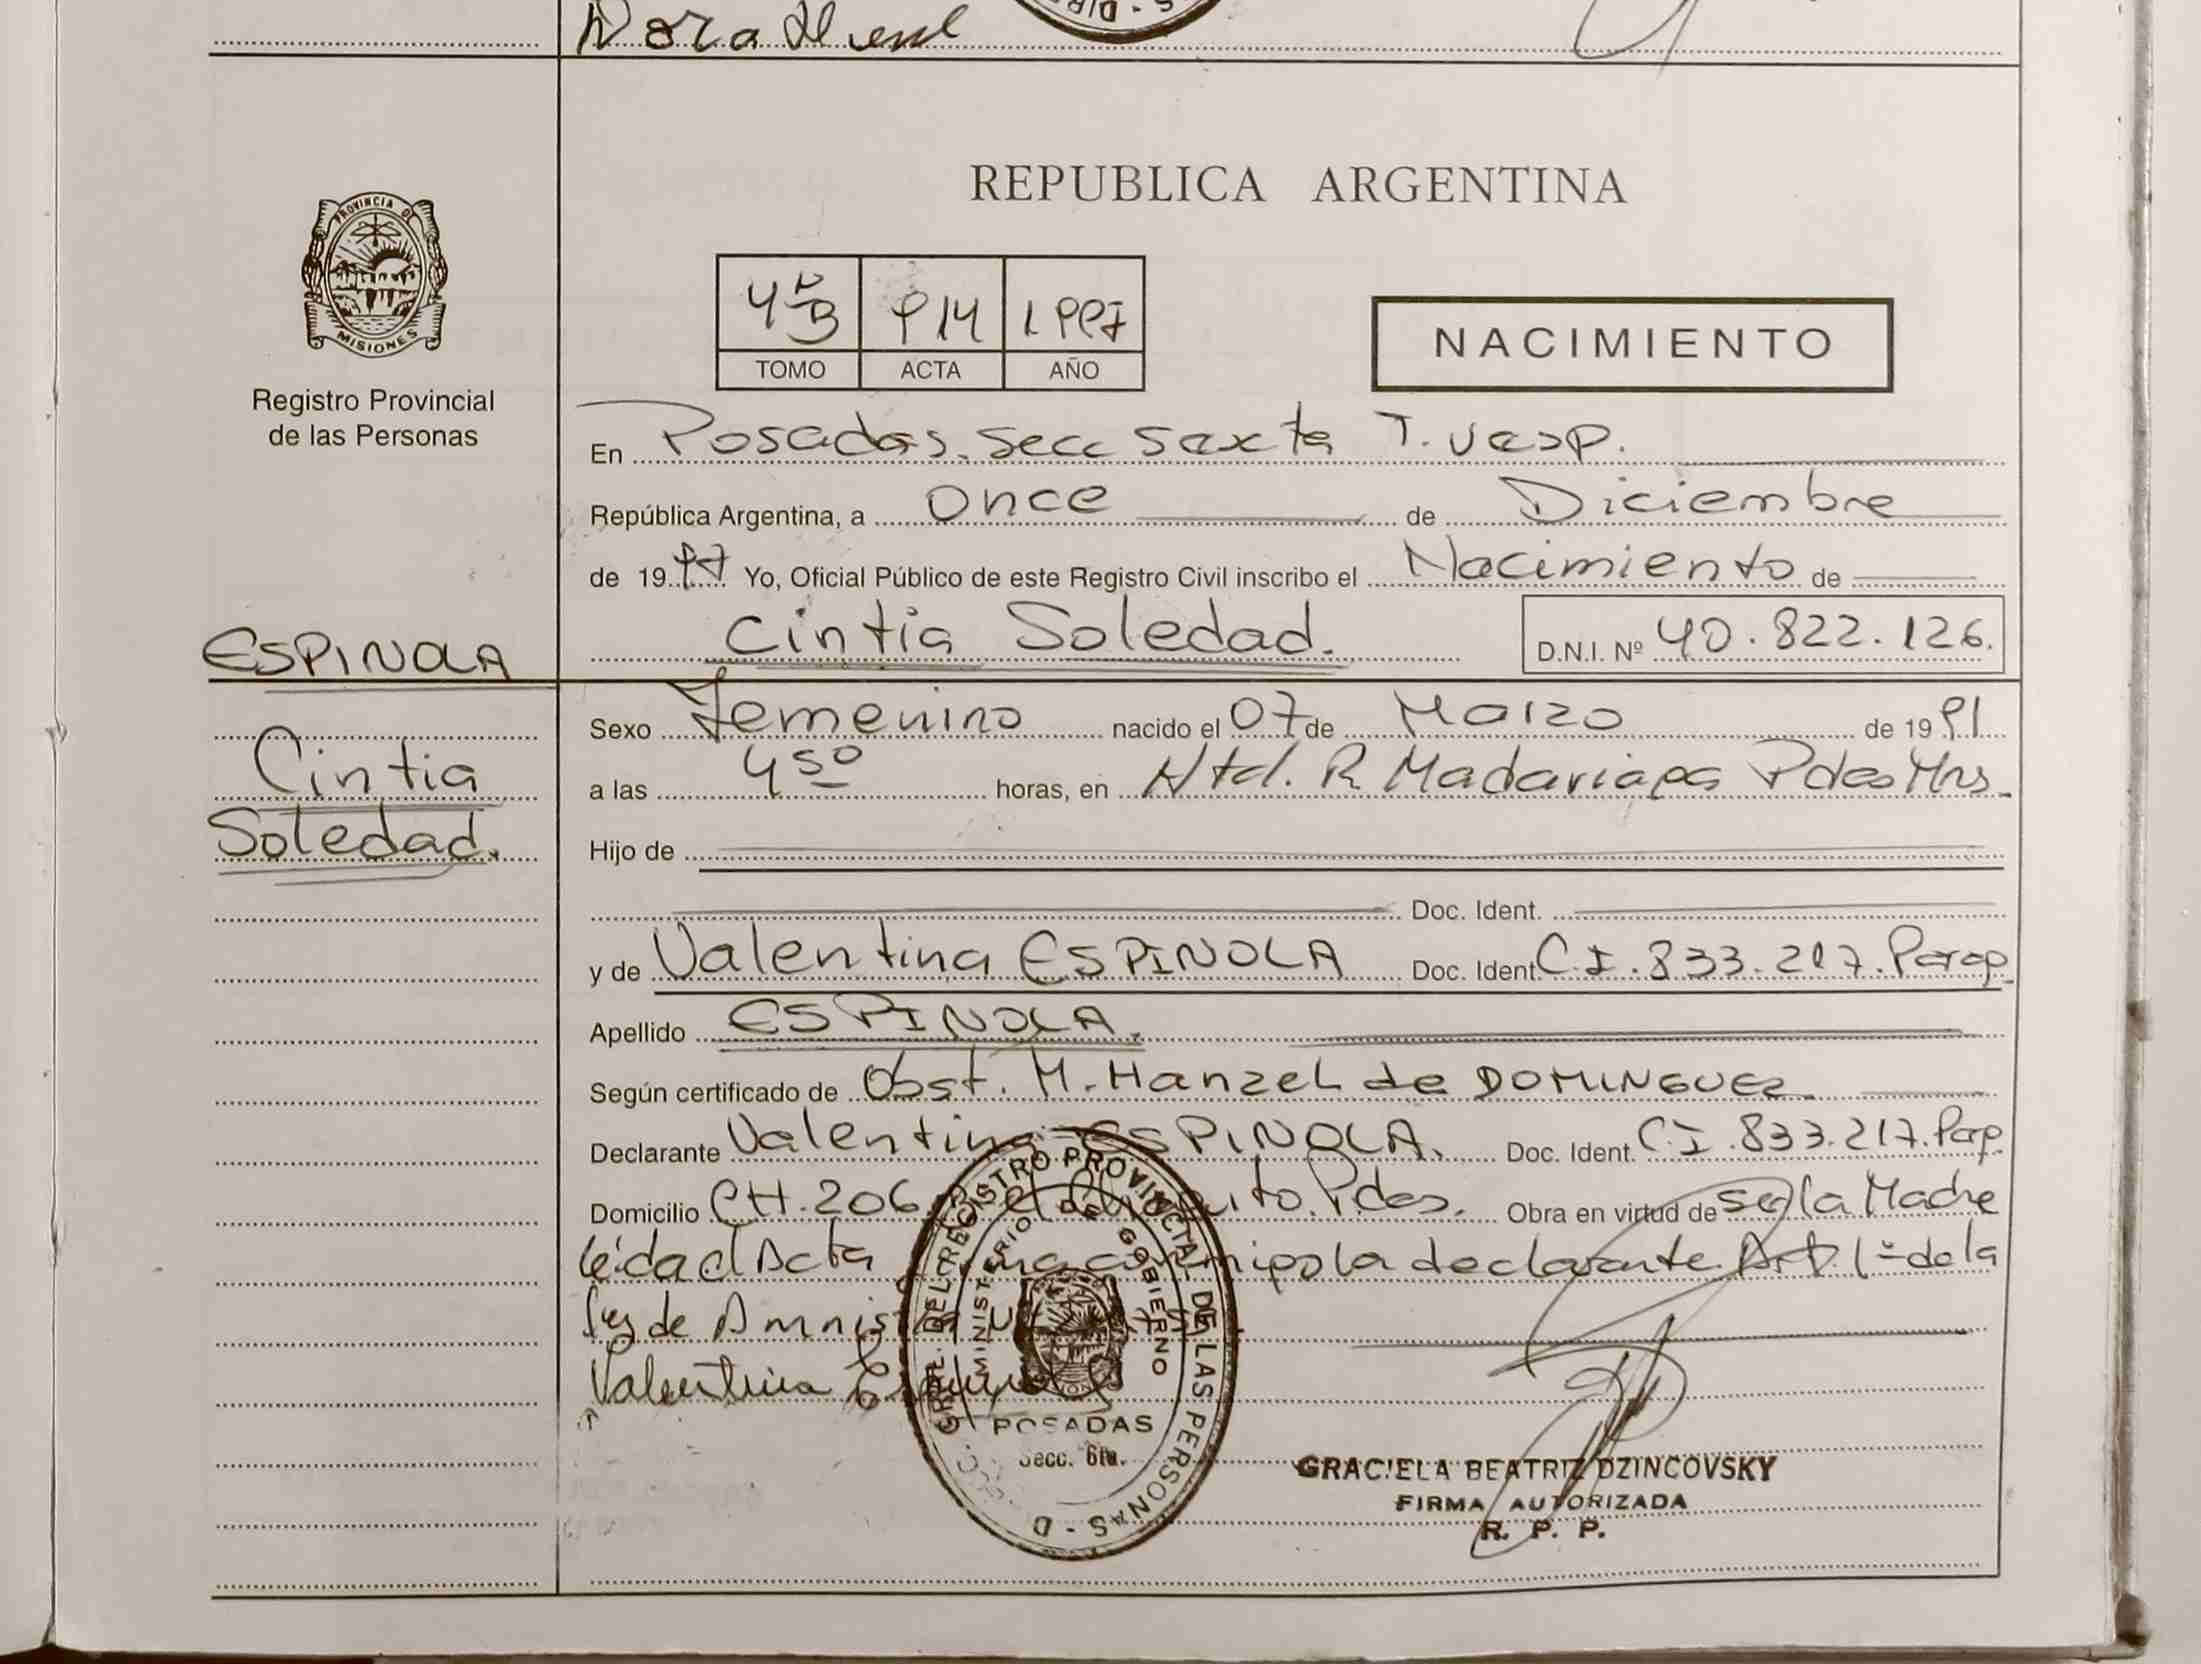 Dora
PROVINCIA DE
MISIONES
Registro Provincial
de las Personas
REPUBLICA ARGENTINA
4º B 914 1997
TOMO ACTA AÑO
NACIMIENTO
En Posadas. Secc Sexta T. Vesp.
República Argentina, a once de Diciembre
de 1997 Yo, Oficial Público de este Registro Civil inscribo el Nacimiento de
Cintia Soledad. D.N.I. Nº 40.822.126.
ESPINOLA
Cintia
Soledad.
Sexo Femenino nacido el 07 de Marzo de 1991
a las 4 50 horas, en Htal. R Madariaga Pdas Mns.
Hijo de
Doc. Ident.
y de Valentina ESPINOLA Doc. Ident C.I. 833.217. Parag.
Apellido ESPINOLA.
Según certificado de Obst. M. Hanzel de DOMINGUEZ
Declarante Valentina ESPINOLA. Doc. Ident. C.I. 833.217. Parg.
Domicilio CH. 206 Pdas. Obra en virtud de ser la Madre
Leida el Acta la declarante Art. 1º de la
Ley de
Valentina
GRAL. DEL REGISTRO PROVINCIAL DE LAS PERSONAS - D
MINISTERIO DE GOBIERNO
POSADAS
Secc. 6ta.
GRACIELA BEATRIZ DZINCOVSKY
FIRMA AUTORIZADA
R. P. P.